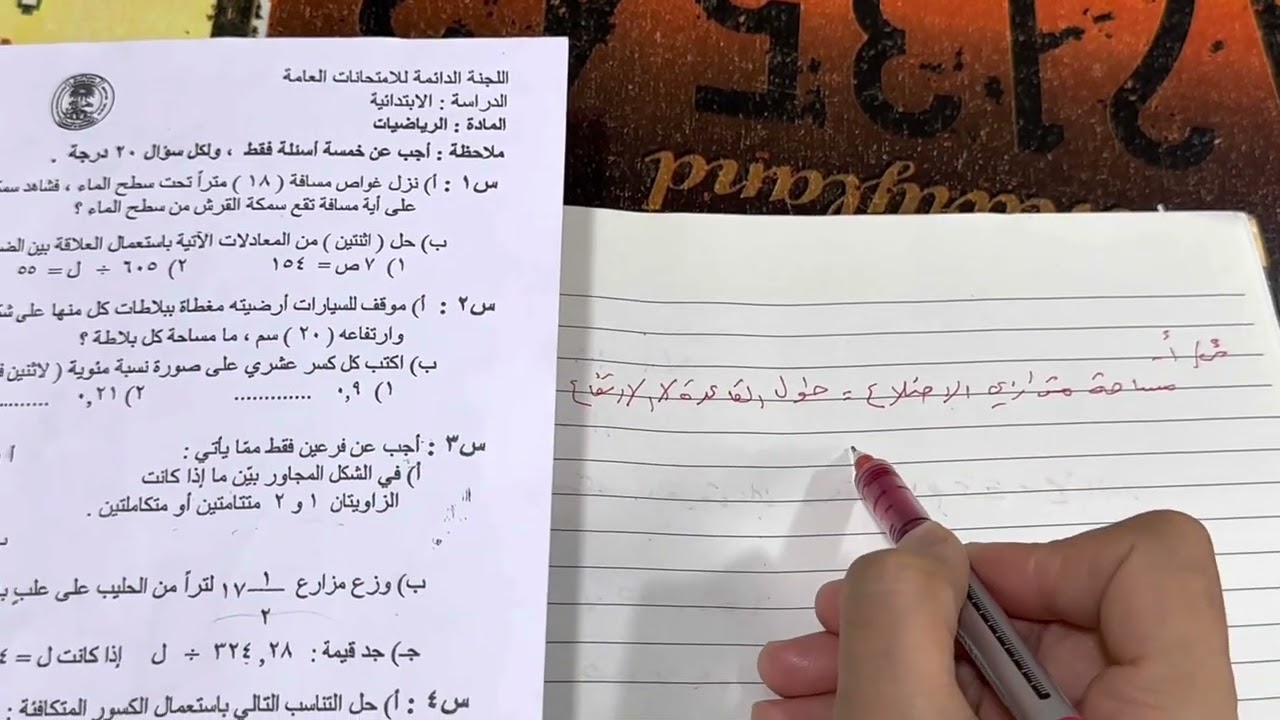 اللجنة الدائمة للامتحانات العامة
الدراسة : الابتدائية
المادة : الرياضيات
ملاحظة : أجب عن خمسة أسئلة فقط ، ولكل سؤال ٢٠ درجة .
س١ : أ) نزل غواص مسافة ( ١٨ ) متراً تحت سطح الماء ، فشاهد
على أية مسافة تقع سمكة القرش من سطح الماء ؟
ب) حل ( اثنتين ) من المعادلات الآتية باستعمال العلاقة بين
١) ٧ ص = ١٥٤ ٢) ٦٠٥ ÷ ل = ٥٥
س٢ : أ) موقف للسيارات أرضيته مغطاة ببلاطات كل منها على
وارتفاعه ( ٢٠ ) سم ، ما مساحة كل بلاطة ؟
ب) اكتب كل كسر عشري على صورة نسبة مئوية ( لاثنين
١) ٠,٩ ............. ٢) ٠,٢١ .........
س٣ : أجب عن فرعين فقط ممّا يأتي :
أ) في الشكل المجاور بيّن ما إذا كانت
الزاويتان ١ و ٢ متتامتين أو متكاملتين .
ب) وزع مزارع ١٧ ١/٢ لتراً من الحليب على علبٍ
جـ) جد قيمة : ٣٢٤,٢٨ ÷ ل إذا كانت ل =
س٤ : أ) حل التناسب التالي باستعمال الكسور المتكافئة :
أ-
مساحة متوازي الاضلاع = طول القاعدة × الارتفاع